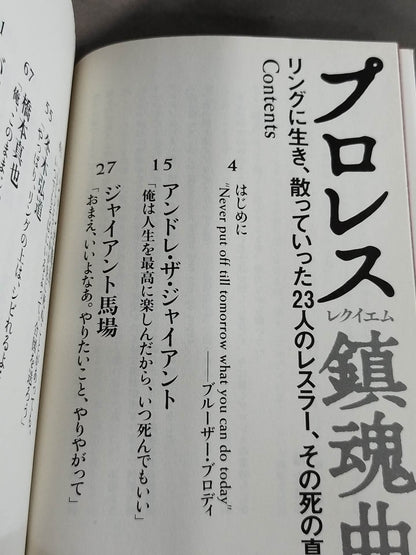 プロレス鎮魂曲
レクイエム
リングに生き、散っていった23人のレスラー、その死の真
Contents
4
はじめに
"Never put off till tomorrow what you can do today"
――ブルーザー・ブロディ
15
アンドレ・ザ・ジャイアント
「俺は人生を最高に楽しんだから、いつ死んでもいい」
27
ジャイアント馬場
「おまえ、いいよなあ。やりたいこと、やりやがって」
55
67
橋本真也